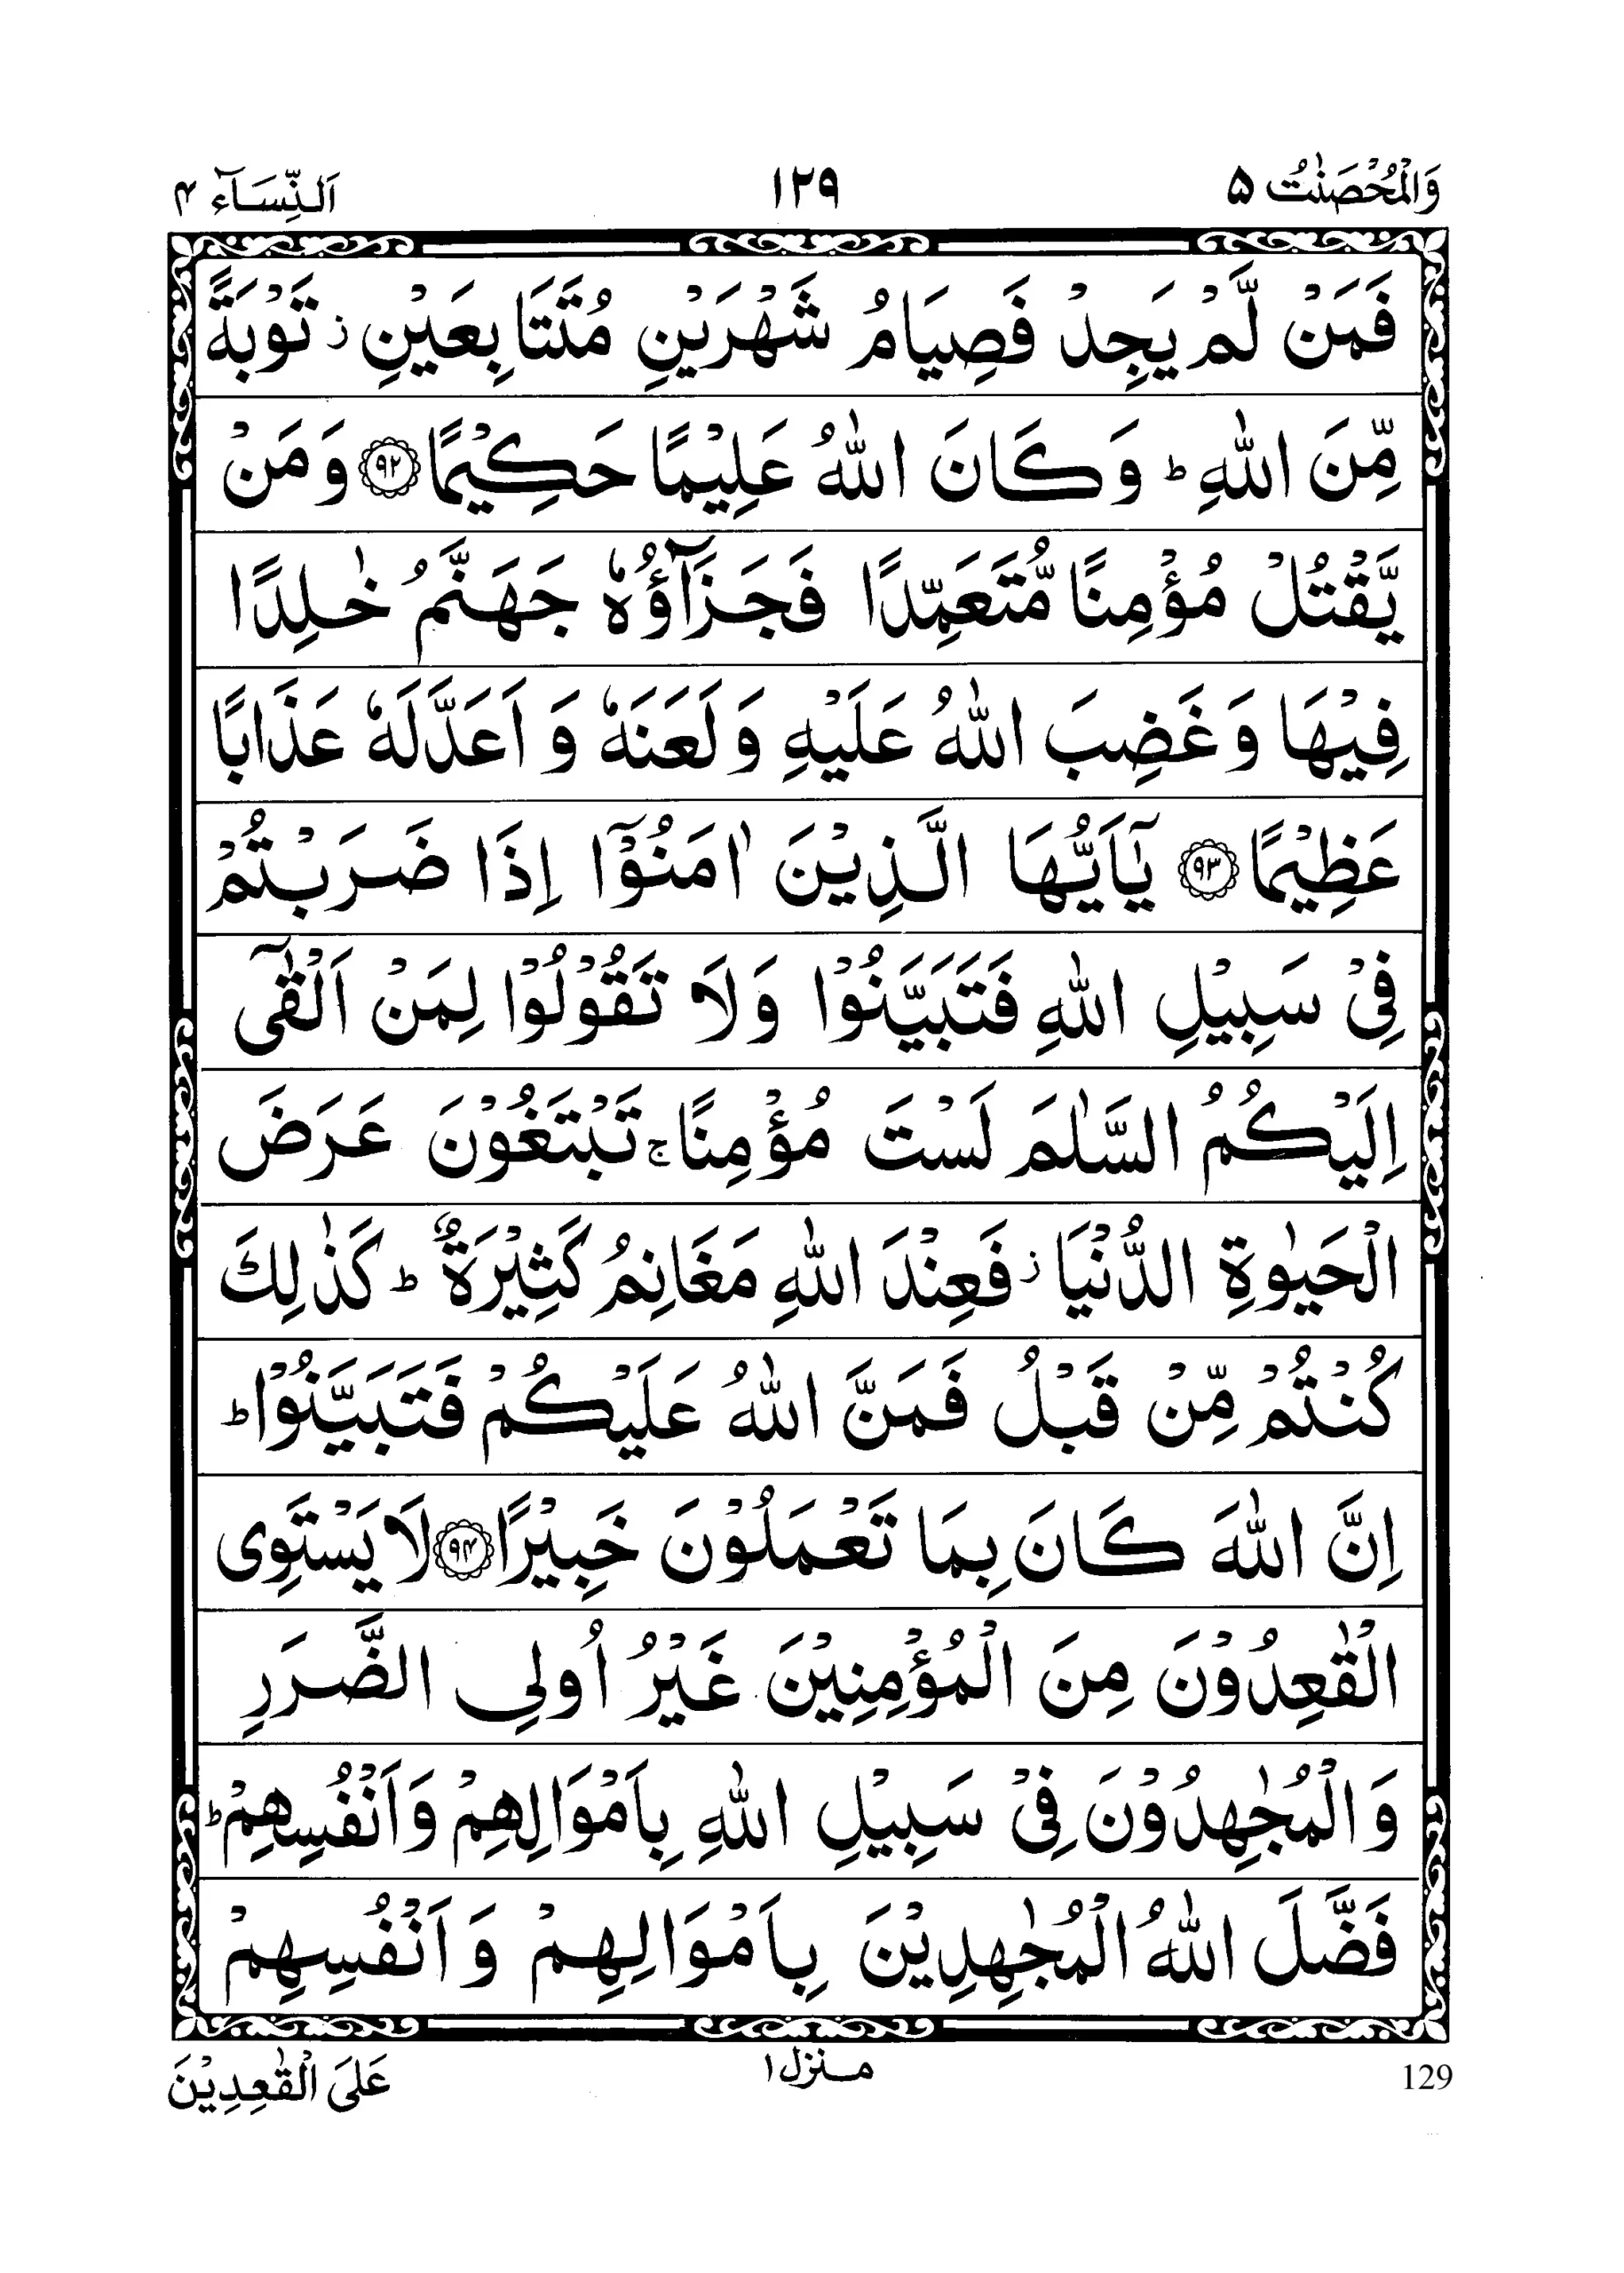 وَالْمُحْصَنٰتُ ۵ ۱۲۹ اَلنِّسَآء ۴
فَمَنْ لَّمْ يَجِدْ فَصِيَامُ شَهْرَيْنِ مُتَتَابِعَيْنِ ز تَوْبَةً
مِّنَ اللّٰهِ ط وَكَانَ اللّٰهُ عَلِيْمًا حَكِيْمًا ۹۲ وَمَنْ
يَّقْتُلْ مُؤْمِنًا مُّتَعَمِّدًا فَجَزَآؤُهٗ جَهَنَّمُ خٰلِدًا
فِيْهَا وَغَضِبَ اللّٰهُ عَلَيْهِ وَلَعَنَهٗ وَاَعَدَّ لَهٗ عَذَابًا
عَظِيْمًا ۹۳ يٰٓاَيُّهَا الَّذِيْنَ اٰمَنُوْٓا اِذَا ضَرَبْتُمْ
فِيْ سَبِيْلِ اللّٰهِ فَتَبَيَّنُوْا وَلَا تَقُوْلُوْا لِمَنْ اَلْقٰٓى
اِلَيْكُمُ السَّلٰمَ لَسْتَ مُؤْمِنًا ج تَبْتَغُوْنَ عَرَضَ
الْحَيٰوةِ الدُّنْيَا ز فَعِنْدَ اللّٰهِ مَغَانِمُ كَثِيْرَةٌ ط كَذٰلِكَ
كُنْتُمْ مِّنْ قَبْلُ فَمَنَّ اللّٰهُ عَلَيْكُمْ فَتَبَيَّنُوْا ط
اِنَّ اللّٰهَ كَانَ بِمَا تَعْمَلُوْنَ خَبِيْرًا ۹۴ لَا يَسْتَوِى
الْقٰعِدُوْنَ مِنَ الْمُؤْمِنِيْنَ غَيْرُ اُولِى الضَّرَرِ
وَالْمُجٰهِدُوْنَ فِيْ سَبِيْلِ اللّٰهِ بِاَمْوَالِهِمْ وَاَنْفُسِهِمْ ط
فَضَّلَ اللّٰهُ الْمُجٰهِدِيْنَ بِاَمْوَالِهِمْ وَاَنْفُسِهِمْ
129 منزل ۱ عَلَى الْقٰعِدِيْنَ